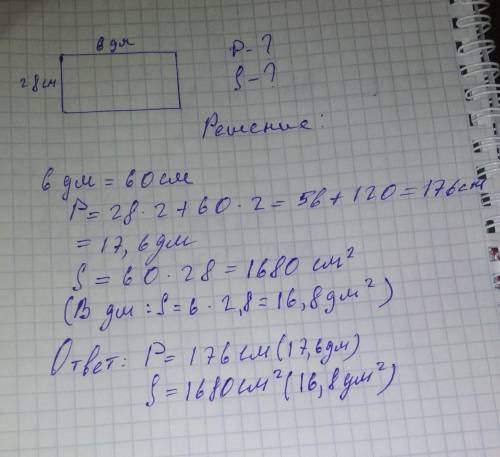 6 дм
28 см
P - ?
S - ?
Решение:
6 дм = 60 см
P = 28 · 2 + 60 · 2 = 56 + 120 = 176 см
= 17,6 дм
S = 60 · 28 = 1680 см²
(В дм: S = 6 · 2,8 = 16,8 дм²)
Ответ: P = 176 см (17,6 дм)
S = 1680 см² (16,8 дм²)